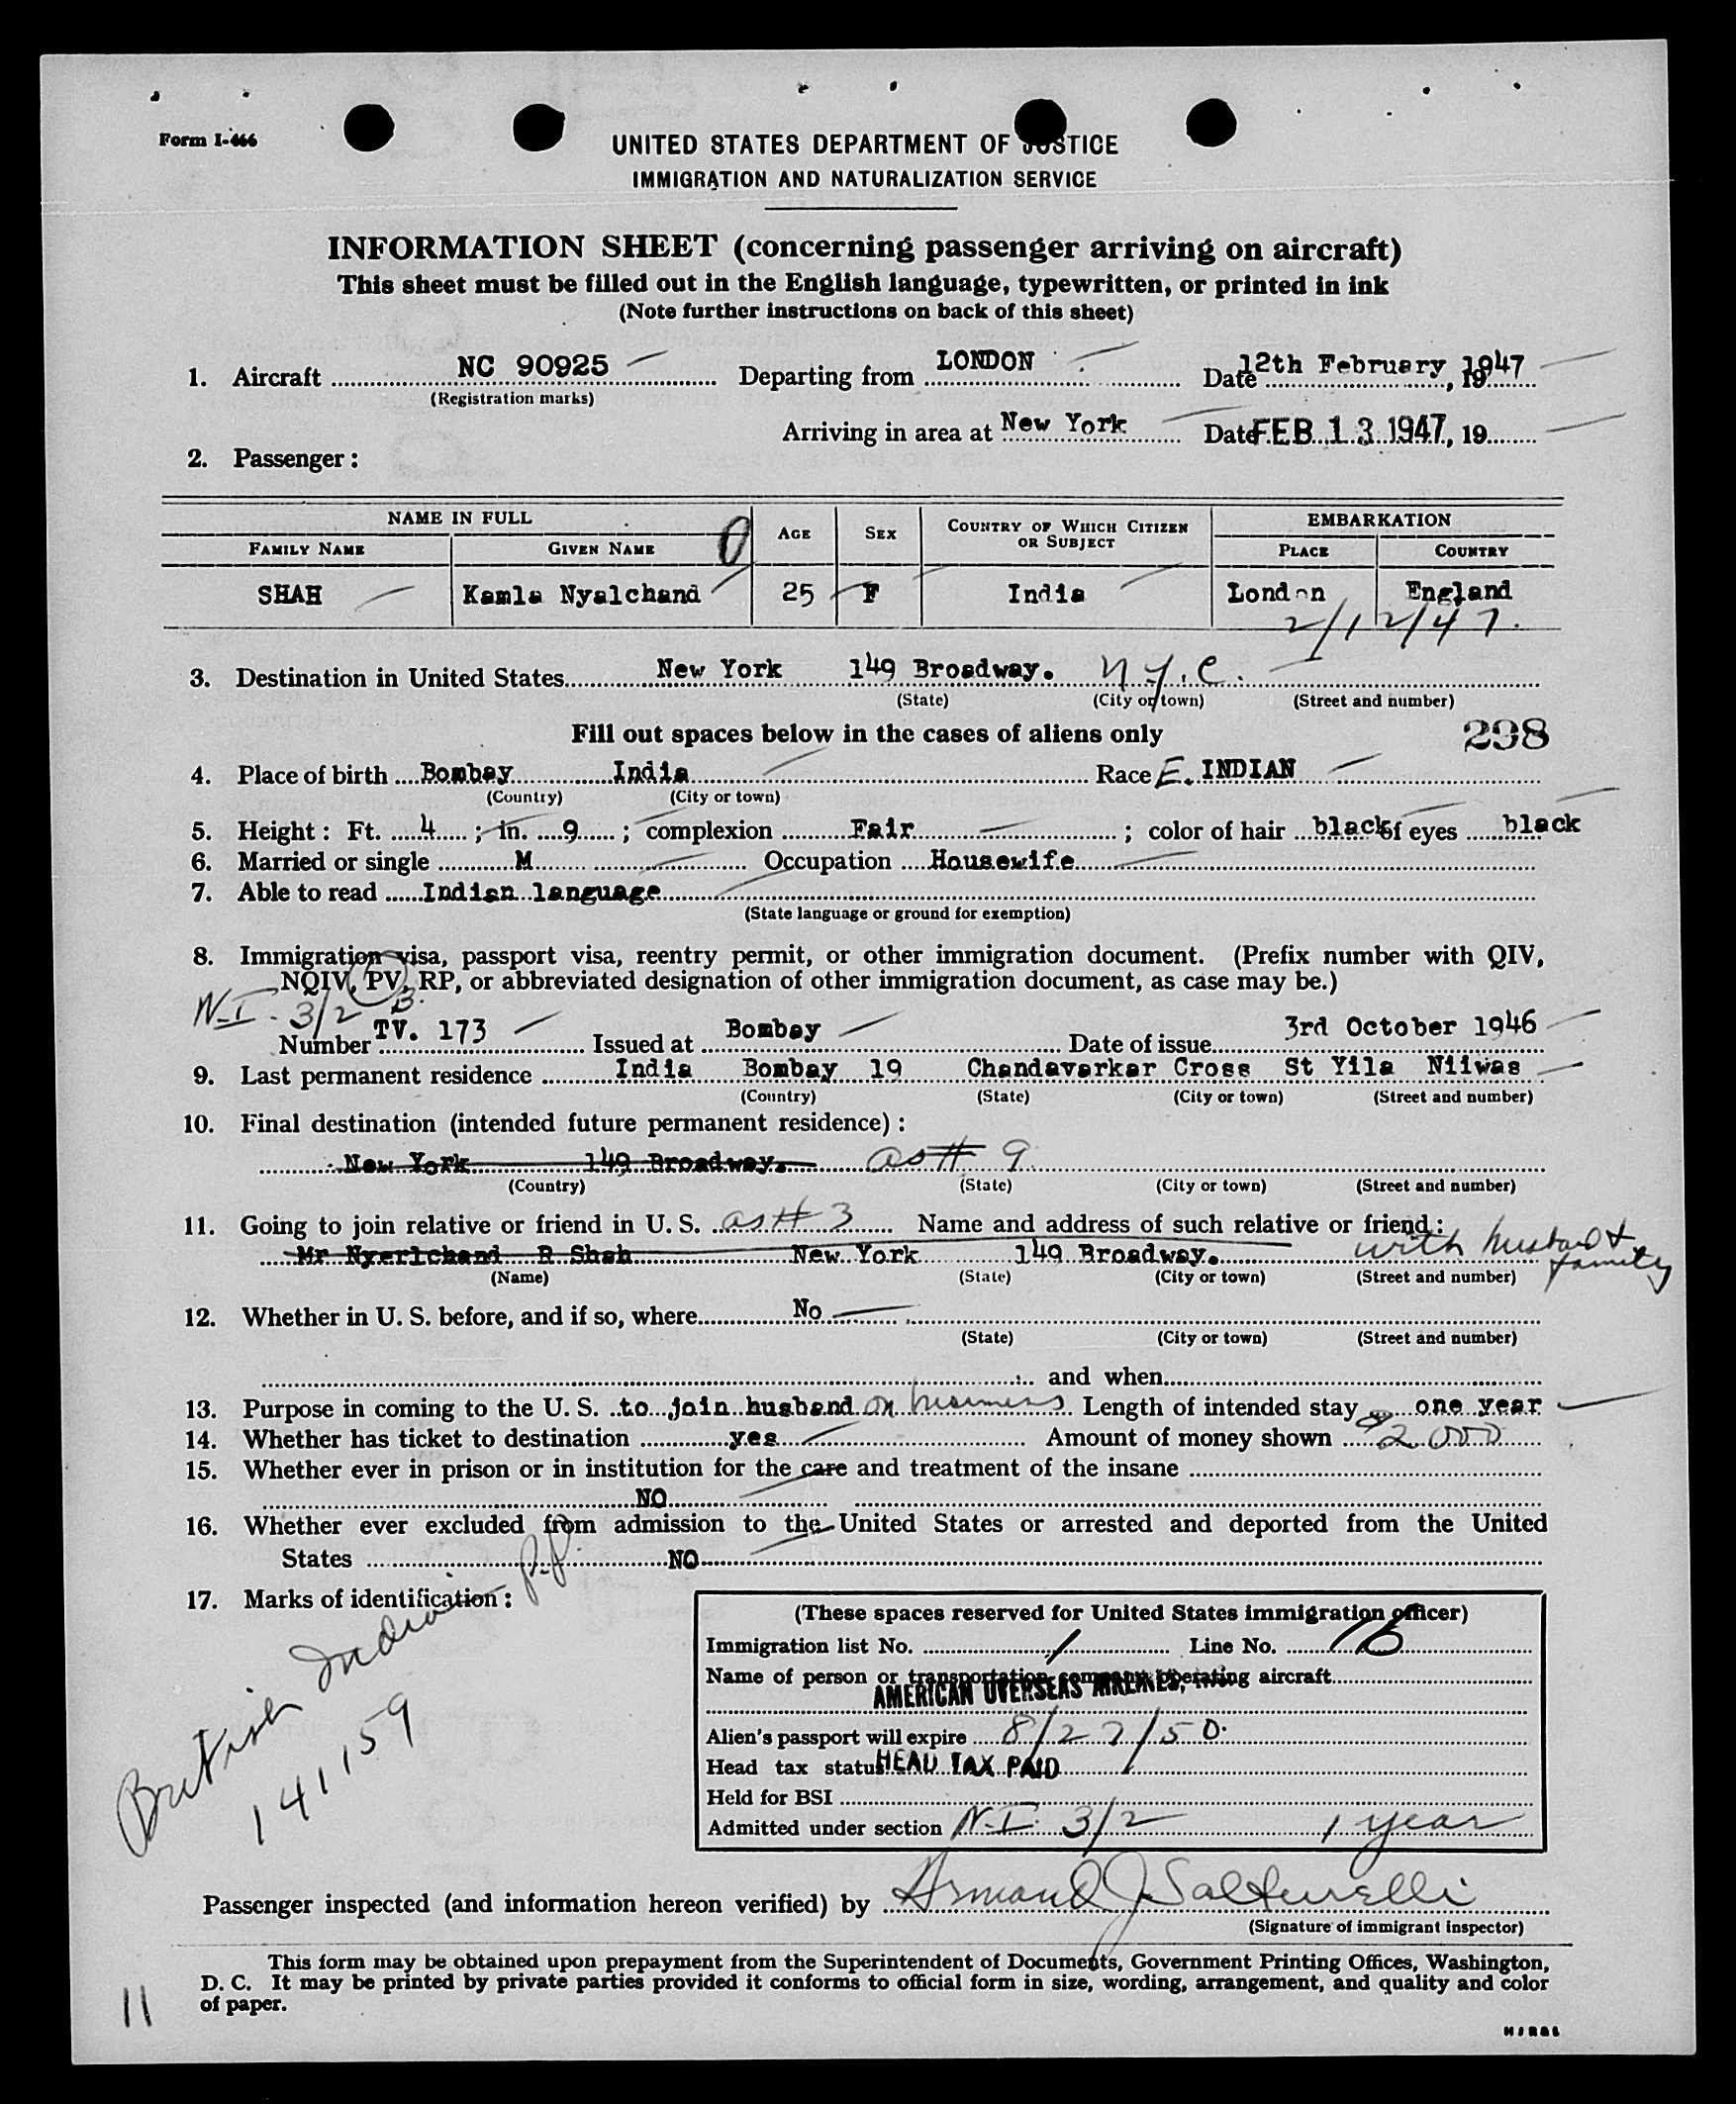 Form I-466
UNITED STATES DEPARTMENT OF JUSTICE
IMMIGRATION AND NATURALIZATION SERVICE
INFORMATION SHEET (concerning passenger arriving on aircraft)
This sheet must be filled out in the English language, typewritten, or printed in ink
(Note further instructions on back of this sheet)
1. Aircraft NC 90925 Departing from LONDON Date 12th February, 1947
(Registration marks)
Arriving in area at New York Date FEB 13 1947, 19
2. Passenger:
NAME IN FULL AGE SEX COUNTRY OF WHICH CITIZEN OR SUBJECT EMBARKATION
FAMILY NAME GIVEN NAME PLACE COUNTRY
SHAH Kamla Nyalchand 25 F India London England
2/12/47.
3. Destination in United States New York 149 Broadway. N.Y.C.
(State) (City or town) (Street and number)
Fill out spaces below in the cases of aliens only 298
4. Place of birth Bombay India Race E. INDIAN
(Country) (City or town)
5. Height: Ft. 4; in. 9; complexion Fair; color of hair black of eyes black
6. Married or single M Occupation Housewife
7. Able to read Indian language
(State language or ground for exemption)
8. Immigration visa, passport visa, reentry permit, or other immigration document. (Prefix number with QIV,
NQIV, PV, RP, or abbreviated designation of other immigration document, as case may be.)
N.I. 3/2 B.
Number TV. 173 Issued at Bombay Date of issue 3rd October 1946
9. Last permanent residence India Bombay 19 Chandavarkar Cross St Yila Niiwas
(Country) (State) (City or town) (Street and number)
10. Final destination (intended future permanent residence):
New York 149 Broadway. as # 9
(Country) (State) (City or town) (Street and number)
11. Going to join relative or friend in U. S. as # 3 Name and address of such relative or friend:
Mr Nyerlchand R Shah New York 149 Broadway. with husband & family
(Name) (State) (City or town) (Street and number)
12. Whether in U. S. before, and if so, where No
(State) (City or town) (Street and number)
and when
13. Purpose in coming to the U. S. to join husband on business Length of intended stay one year
14. Whether has ticket to destination yes Amount of money shown $2000
15. Whether ever in prison or in institution for the care and treatment of the insane
NO
16. Whether ever excluded from admission to the United States or arrested and deported from the United
States NO
17. Marks of identification:
British Indian P.P.
141159
(These spaces reserved for United States immigration officer)
Immigration list No. 1 Line No. 13
Name of person or transportation company operating aircraft
AMERICAN OVERSEAS AIRLINES, INC.
Alien's passport will expire 8/27/50.
Head tax status HEAD TAX PAID
Held for BSI
Admitted under section N.I. 3/2 1 year
Passenger inspected (and information hereon verified) by Armand J. Salturelli
(Signature of immigrant inspector)
This form may be obtained upon prepayment from the Superintendent of Documents, Government Printing Offices, Washington,
D. C. It may be printed by private parties provided it conforms to official form in size, wording, arrangement, and quality and color
of paper.
11